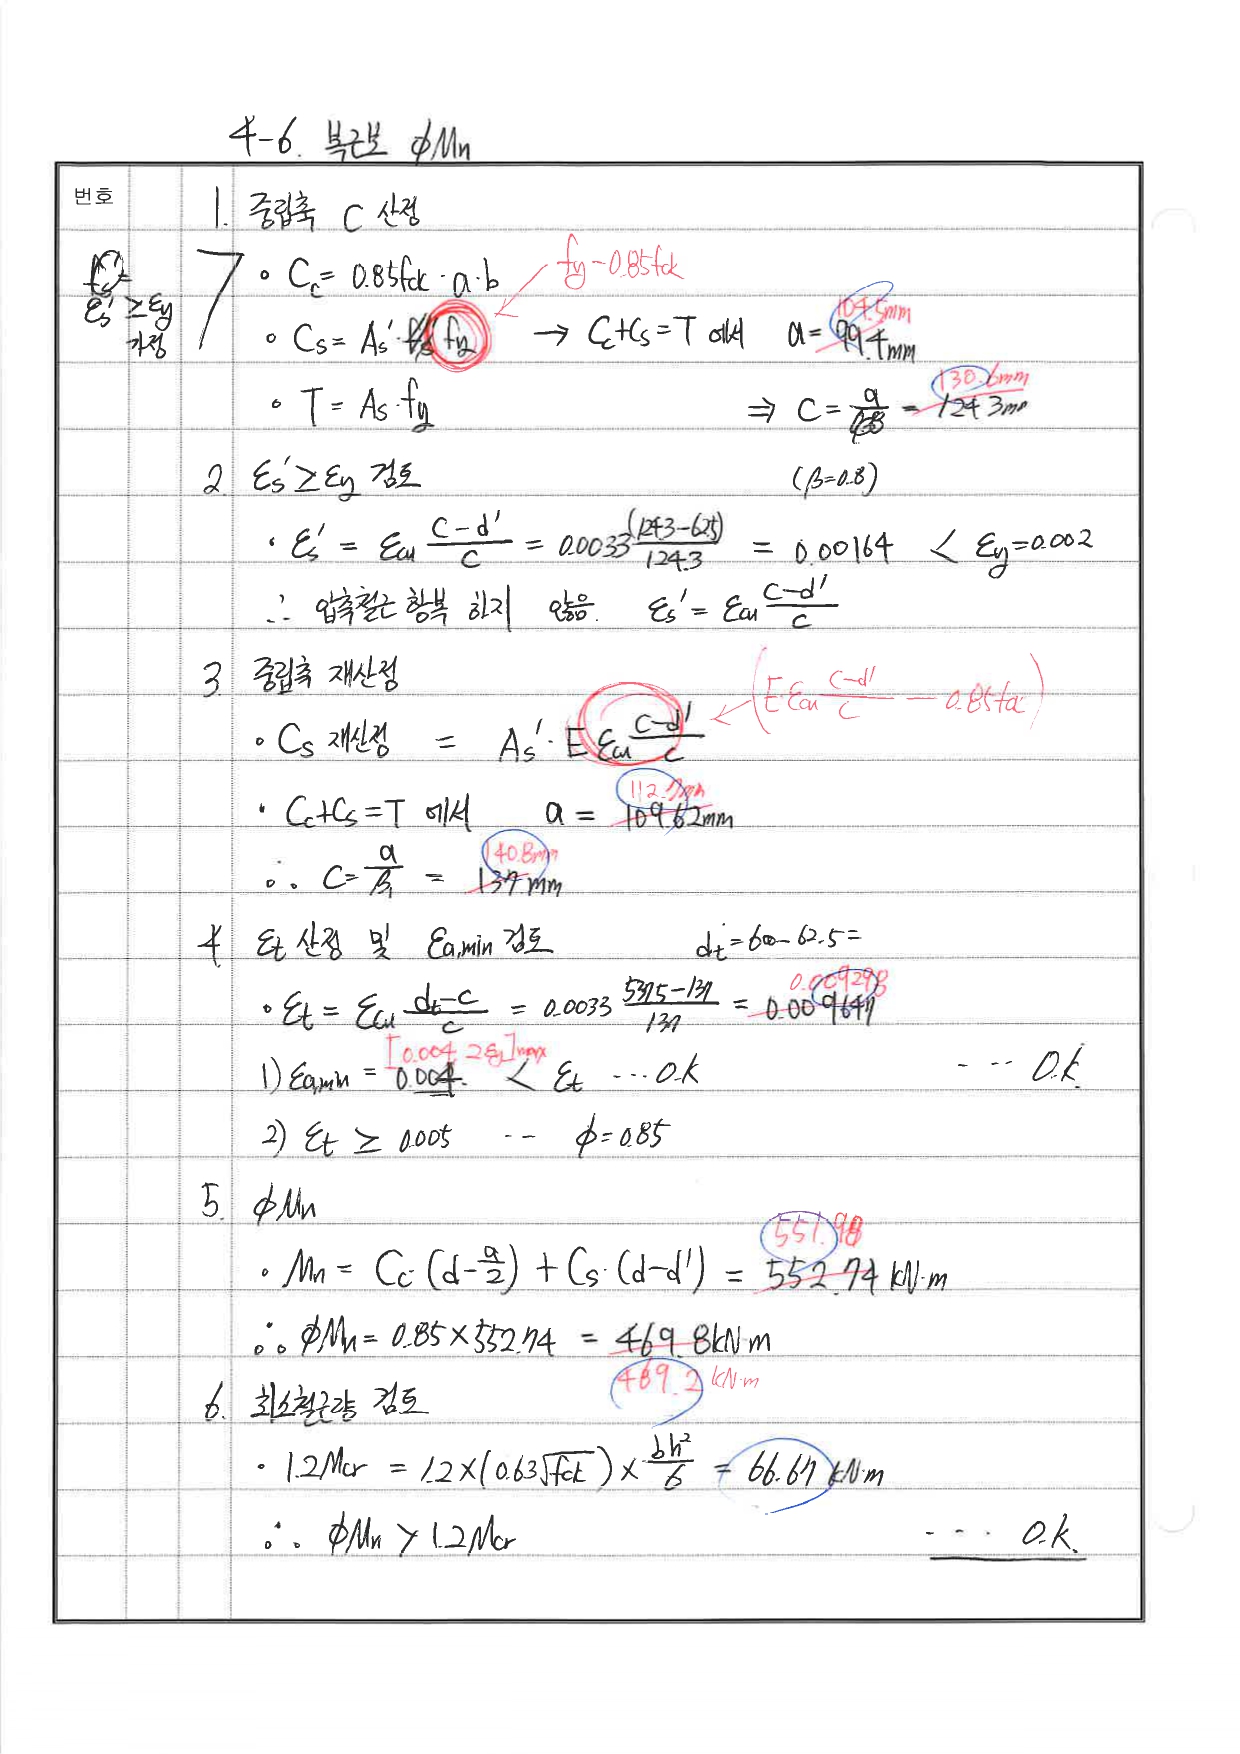 4-6. 복근보 φMn
번호
1. 중립축 C 산정
εs' ≥ εy 가정
• Cc = 0.85fck · a · b
fy - 0.85fck
• Cs = As' · fy → Cc + Cs = T 에서 a = 99.4mm 104.5mm
• T = As · fy ⇒ C = a/0.8 = 124.3mm 130.6mm
2. εs' ≥ εy 검토 (β=0.8)
• εs' = εcu (C-d')/C = 0.0033 (124.3-62.5)/124.3 = 0.00164 < εy = 0.002
∴ 압축철근 항복 하지 않음. εs' = εcu (C-d')/C
3 중립축 재산정
(E·εcu (C-d')/C - 0.85fck)
• Cs 재산정 = As' · E εcu (C-d')/C
• Cc + Cs = T 에서 a = 109.62mm 112.7mm
∴ C = a/β1 = 137mm 140.8mm
4 εt 산정 및 εa,min 검토 dt = 600 - 62.5 =
• εt = εcu (dt-C)/C = 0.0033 (537.5-137)/137 = 0.009647 0.009298
[0.004, 2εy]max
1) εa,min = 0.004 < εt ··· O.K ··· O.K
2) εt ≥ 0.005 ·· φ = 0.85
5. φMn
• Mn = Cc · (d - a/2) + Cs · (d-d') = 552.74 kN·m 551.98
∴ φMn = 0.85 × 552.74 = 469.8kN·m
469.2 kN·m
6. 최소철근량 검토
• 1.2Mcr = 1.2 × (0.63√fck) × bh²/6 = 66.67 kN·m
∴ φMn > 1.2Mcr ···· O.K.